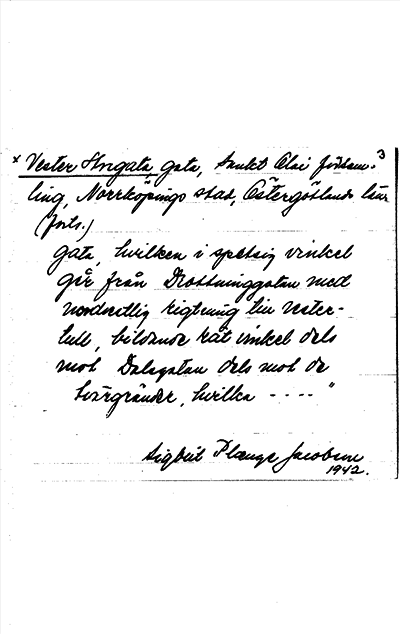 3
x Vester Storgata, gata, Sankt Olai försam-
ling, Norrköpings stad, Östergötlands län
(forts.)
gata, hvilken i spetsig vinkel
går från Drottninggatan med
nordvestlig rigtning till Vester-
tull, bildande rät vinkel dels
mot Dalsgatan dels mot de
tvärgränder, hvilka - - - - "
Sigbrit Plænge Jacobson
1942.